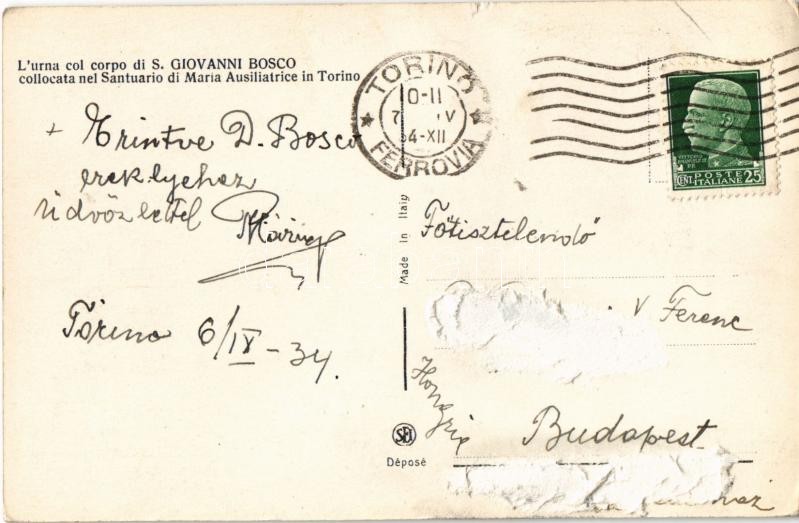 L'urna col corpo di S. GIOVANNI BOSCO
collocata nel Santuario di Maria Ausiliatrice in Torino
+ Érintve D. Bosco
ereklyéhez
Üdvözlettel
Torino 6/IV - 34.
TORINO
10-11
7 IV
34-XII
FERROVIA
VITTORIO
EMANUELE III
RE
CENT. POSTE
ITALIANE 25
Made in Italy
Főtisztelendő
v Ferenc
Hongrie
Budapest
SEI
Déposé